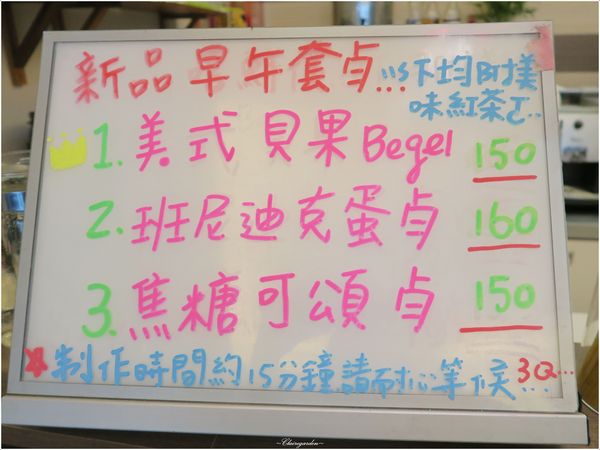 新品早午套卤...以下均附撲味紅茶乙...
1. 美式貝果Begel 150
2. 班尼迪克蛋卤 160
3. 焦糖可頌卤 150
制作時間約15分鐘請耐心等候... 3Q...
~Clairegarden~